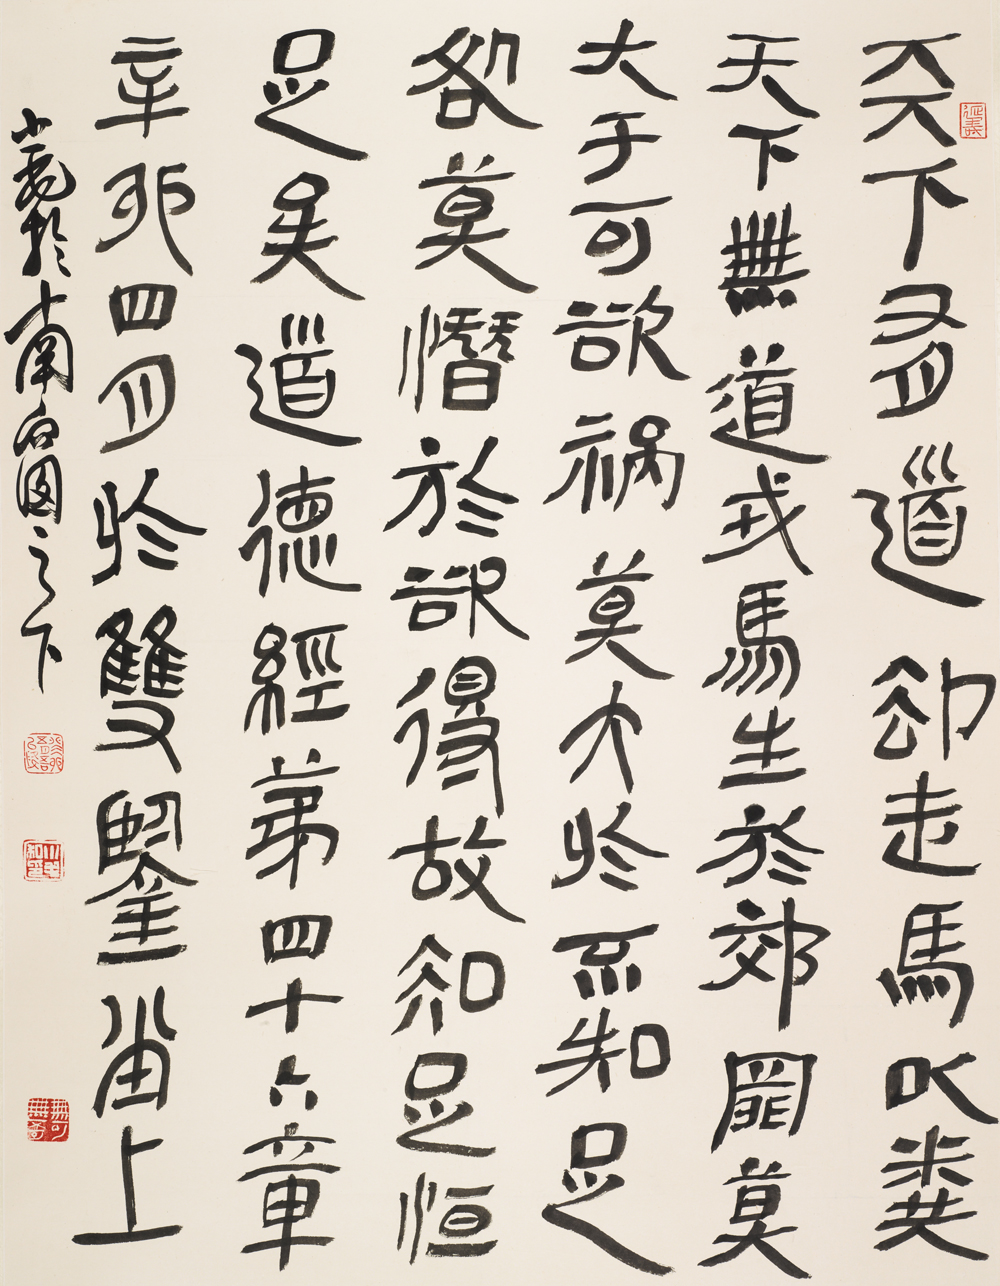 天下有道卻走馬以糞
天下無道戎馬生於郊罪莫
大于可欲祸莫大於不知足
咎莫憯於欲得故知足恒
足矣道德經第四十六章
辛卯四月於雙上
於南之下